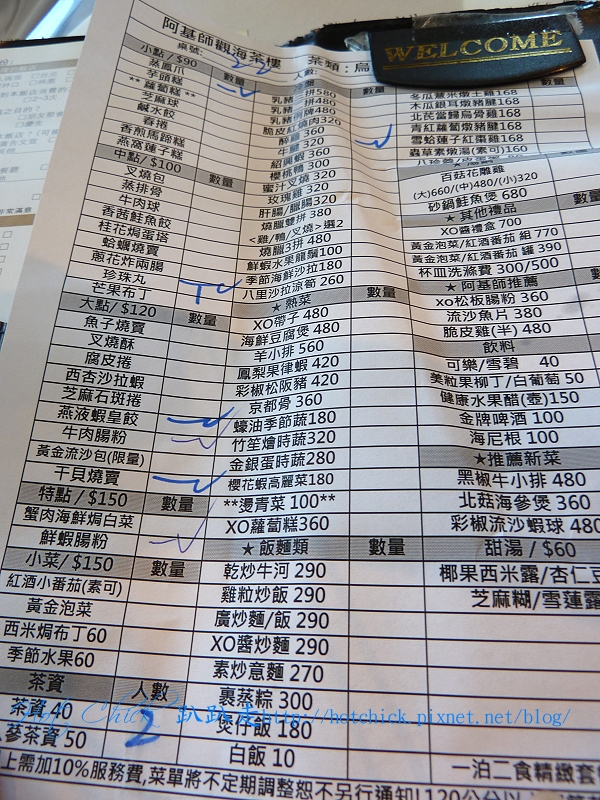 WELCOME
阿基師觀海茶樓
桌號:
人數:
茶類: 烏
小點/$90 數量
蒸鳳爪
芋頭糕
**蘿蔔糕**
芝麻球
鹹水餃
春捲
香煎馬蹄糕
燕窩蓮子糕
中點/$100 數量
叉燒包
蒸排骨
牛肉球
香茜鯪魚餃
桂花焗蛋塔
蛤蠣燒賣
蔥花炸兩腸
珍珠丸
芒果布丁
大點/$120 數量
魚子燒賣
叉燒酥
腐皮捲
西杏沙拉蝦
芝麻石斑捲
燕液蝦皇餃
牛肉腸粉
黃金流沙包(限量)
干貝燒賣
特點/$150 數量
蟹肉海鮮焗白菜
鮮蝦腸粉
小菜/$150 數量
紅酒小番茄(素可)
黃金泡菜
西米焗布丁60
季節水果60
茶資 人數
茶資 40
蔘茶資 50
2
數量
醉雞 360
牛腱 320
紹興蝦 360
櫻桃鴨 300
蜜汁叉燒 320
玫瑰雞 320
肝腸/臘腸320
燒臘雙拼 380
<雞/鴨/叉燒>選2
燒臘3拼 480
鮮蝦水果龍鬚100
季節海鮮沙拉180
八里沙拉涼筍 260
★熱菜 數量
XO帶子 480
海鮮豆腐煲 480
羊小排 560
鳳梨果律蝦 420
彩椒松阪豬 420
京都骨 360
蠔油季節蔬180
竹笙燴時蔬320
金銀蛋時蔬280
櫻花蝦高麗菜180
**燙青菜 100**
XO蘿蔔糕360
★飯麵類 數量
乾炒牛河 290
雞粒炒飯 290
廣炒麵/飯 290
XO醬炒麵 290
素炒意麵 270
裹蒸粽 300
煲仔飯 180
白飯 10
冬瓜薏米燉土雞168
木瓜銀耳燉豬腱168
北芪當歸烏骨雞168
青紅蘿蔔燉豬腱168
雪蛤蓮子紅棗雞168
蟲草素燉湯(素可)160
百菇花雕雞
(大)660/(中)480/(小)320
砂鍋鮭魚煲 680
★其他禮品 數量
XO醬禮盒 700
黃金泡菜/紅酒番茄 組 770
黃金泡菜/紅酒番茄 罐 390
杯皿洗滌費 300/500
★阿基師推薦 數
xo松板腸粉 360
流沙魚片 380
脆皮雞(半) 480
飲料
可樂/雪碧 40
美粒果柳丁/白葡萄 50
健康水果醋(壺)150
金牌啤酒 100
海尼根 100
★推薦新菜
黑椒牛小排 480
北菇海參煲 360
彩椒流沙蝦球 480
甜湯 / $60
椰果西米露/杏仁豆
芝麻糊/雪蓮露
一泊二食精緻套
上需加10%服務費,菜單將不定期調整恕不另行通知!120公分以
Hot Chick 趴趴走http://hotchick.pixnet.net/blog/